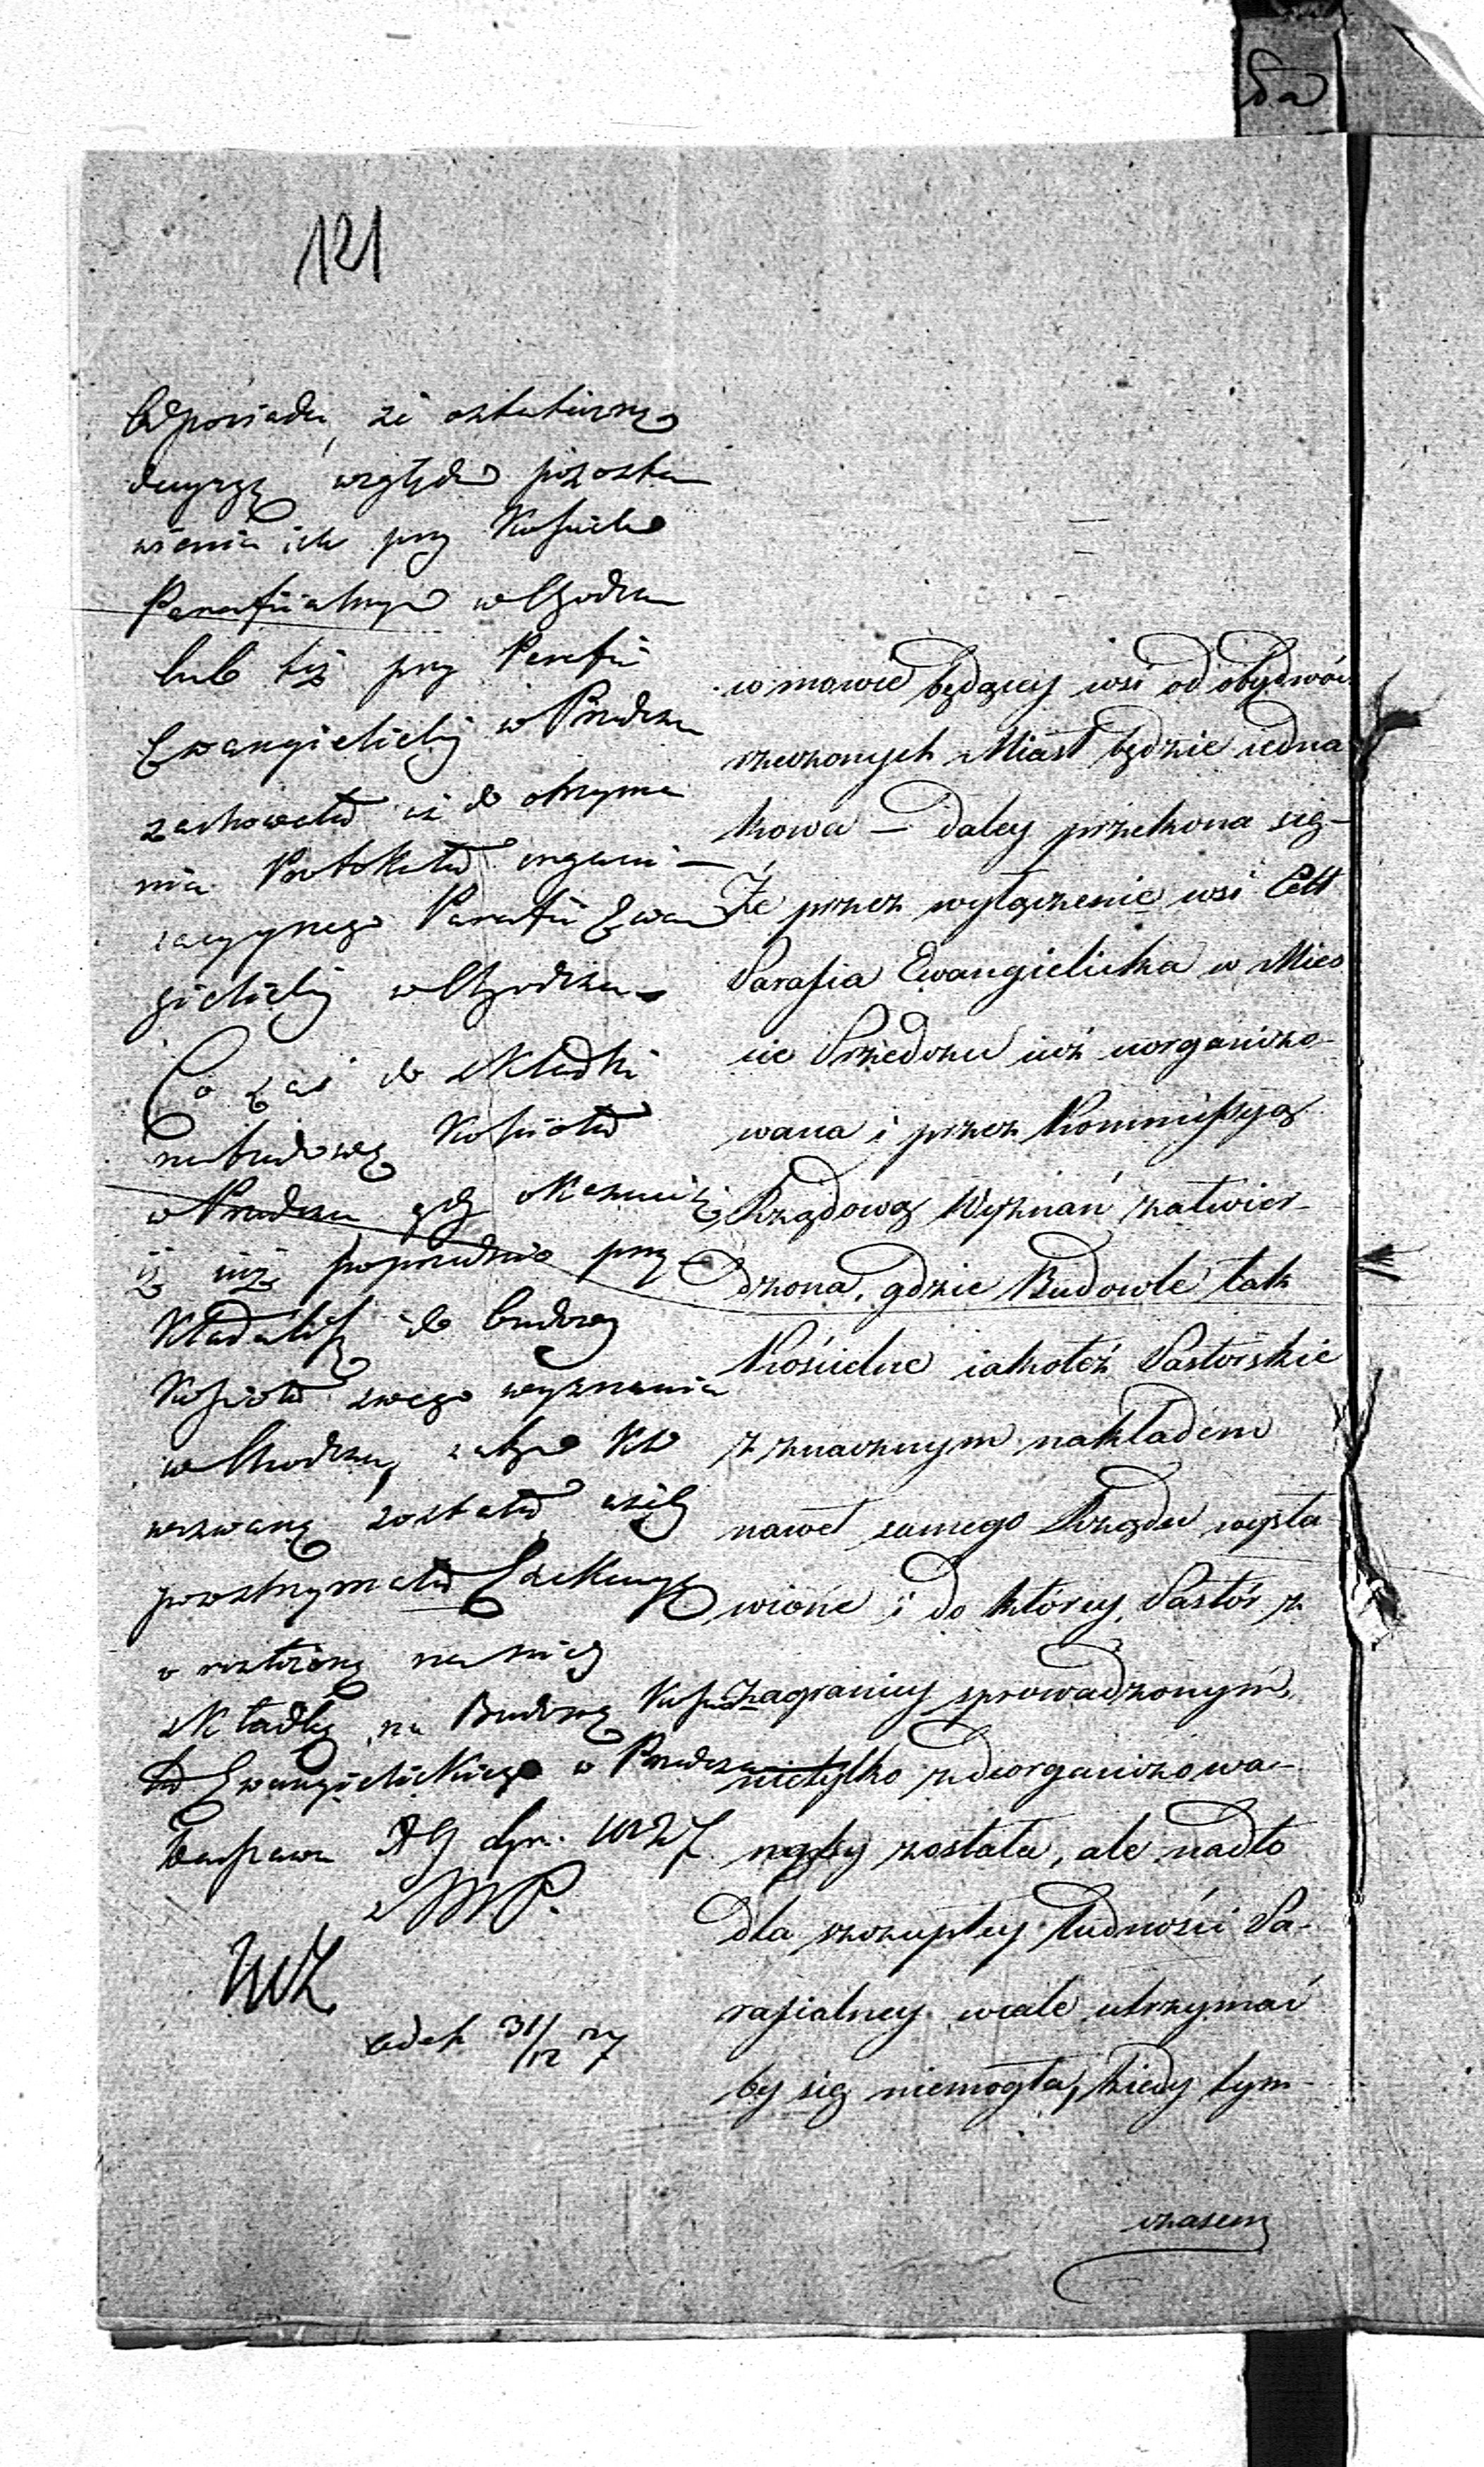 121
Odpowiada, że ostateczną
decyzyę względem pozosta
wienia ich przy Kościele
Parafialnym w Chodczu
lub też przy Parafii
Ewangielickiey w Przedczu
zachowała do otrzyma
nia Protokułu organi-
zacyynego Parafii Ewan
gielickiey w Chodczu
Co zaś do składki
na budowę Kościoła
w Przedczu gdy
iż już poprzednio przy
kładali się do budowy
Kościoła swego wyznania
w Chodczu, zatem KW
wezwaną została ażeby
powstrzymała Exekucyę
o rozłożoną na nich
składkę na Budowę Kościo
ła Ewangielickiego w Przedczu
Warszawa 1827
31/12 27
w mowie będącey wsi od obydwóch
rzeczonych Miast będzie iedna
kowa — daley przekona się
Że przez wyłączenie wsi
Parafia Ewangielicka w Mieś
cie Przedczu iuż uorganizo-
wana i przez Kommissyą
Rządową Wyznań zatwier-
dzona, gdzie Budowle tak
Kościelne iakoteż Pastorskie
z znacznym nakładem
nawet samego Rządu wysta
wione i do którey Pastór z
zagranicy sprowadzonym,
nietylko zdeorganizowa-
ną by została, ale nadto
dla szczupłey ludności Pa-
rafialney wcale utrzymać
by się niemogła, kiedy tym-
czasem